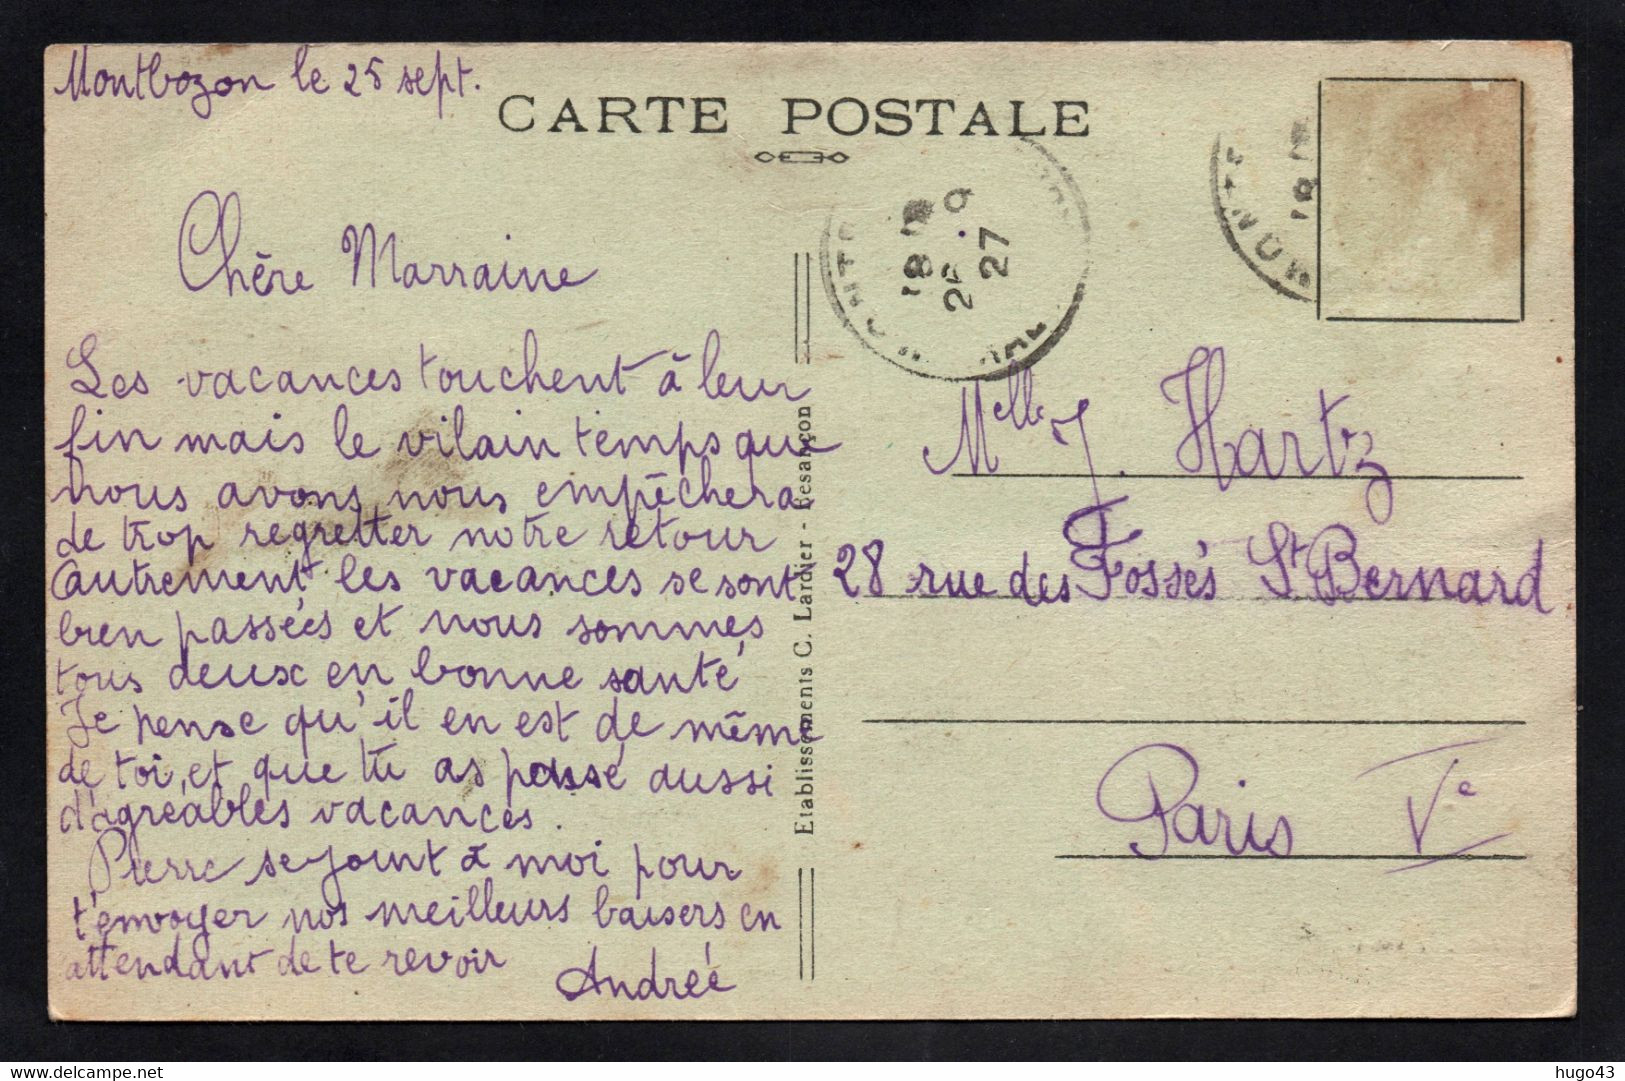 Montbozon le 25 sept.
CARTE POSTALE
Chère Marraine
Les vacances touchent à leur
fin mais le vilain temps que
nous avons nous empêchera
de trop regretter notre retour
autrement les vacances se sont
bien passées et nous sommes
tous deux en bonne santé
Je pense qu'il en est de même
de toi, et que tu as passé aussi
d'agréables vacances.
Pierre se joint à moi pour
t'envoyer nos meilleurs baisers en
attendant de te revoir
Andrée
Etablissements C. Lardier - Besançon
18
27
18
Melle J. Hartz
28 rue des Fossés St Bernard
Paris Ve
hugo43